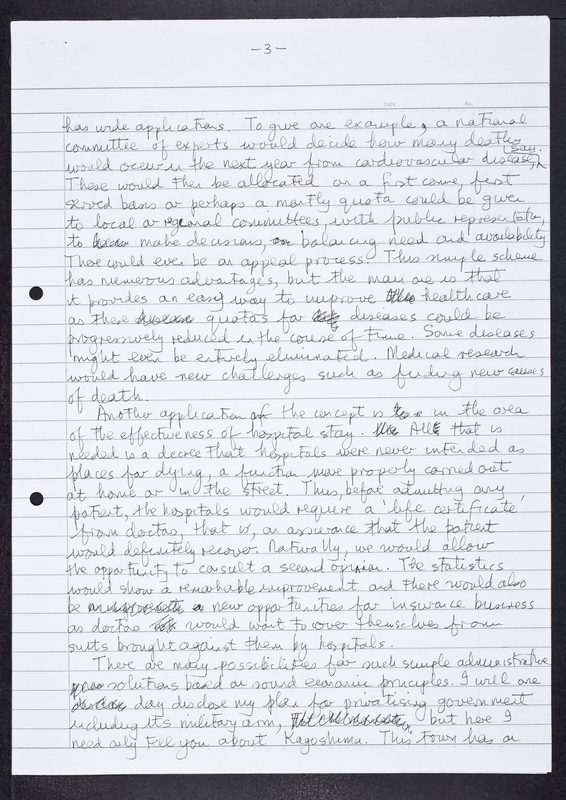 - 3 -
Date No.
has wide applications. To give one example, a national
committee of experts would decide how many deaths
would occur in the next year from cardiovascular disease, say.
These would then be allocated on a first come, first
served basis or perhaps a monthly quota could be given
to local or regional committees, with public representation,
to make decisions, balancing need and availability.
There could even be an appeal process. This simple scheme
has numerous advantages, but the main one is that
it provides an easy way to improve healthcare
as these quotas for diseases could be
progressively reduced in the course of time. Some diseases
might even be entirely eliminated. Medical research
would have new challenges such as finding new causes
of death.
Another application of the concept is in the area
of the effectiveness of hospital stay. All that is
needed is a decree that hospitals were never intended as
places for dying, a function more properly carried out
at home or in the street. Thus, before admitting any
patient, the hospitals would require a 'life certificate'
from doctors, that is, an assurance that the patient
would definitely recover. Naturally, we would allow
the opportunity to consult a second opinion. The statistics
would show a remarkable improvement and there would also
be new opportunities for insurance business
as doctors would want to cover themselves from
suits brought against them by hospitals.
There are many possibilities for such simple administrative
solutions based on sound economic principles. I will one
day disclose my plan for privatising government
including its military arm, but here I
need only tell you about Kagoshima. This town has a